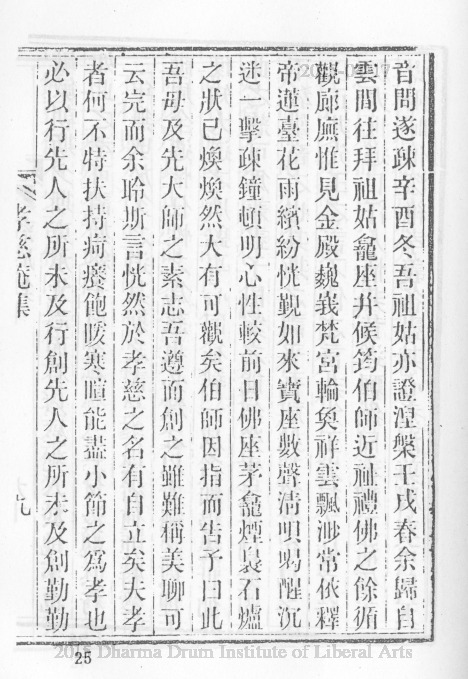 音問遂疎辛酉冬吾祖姑亦證涅槃壬戌春余歸自
雲間往拜祖姑龕座并候筠伯師近祉禮佛之餘循
觀廊廡惟見金殿巍峩梵宮輪奐祥雲飄渺常依釋
帝蓮臺花雨繽紛恍覲如來寶座數聲清唄喝醒沉
迷一擊疎鐘頓明心性較前日佛座茅龕煙裊石爐
之狀已煥煥然大有可觀矣伯師因指而告予曰此
吾母及先大師之素志吾遵而創之雖難稱美聊可
云完而余聆斯言恍然於孝慈之名有自立矣夫孝
者何不特扶持疴癢飽暖寒暄能盡小節之為孝也
必以行先人之所未及行創先人之所未及創勤勤
孝慈庵集
九
25
2015 Dharma Drum Institute of Liberal Arts